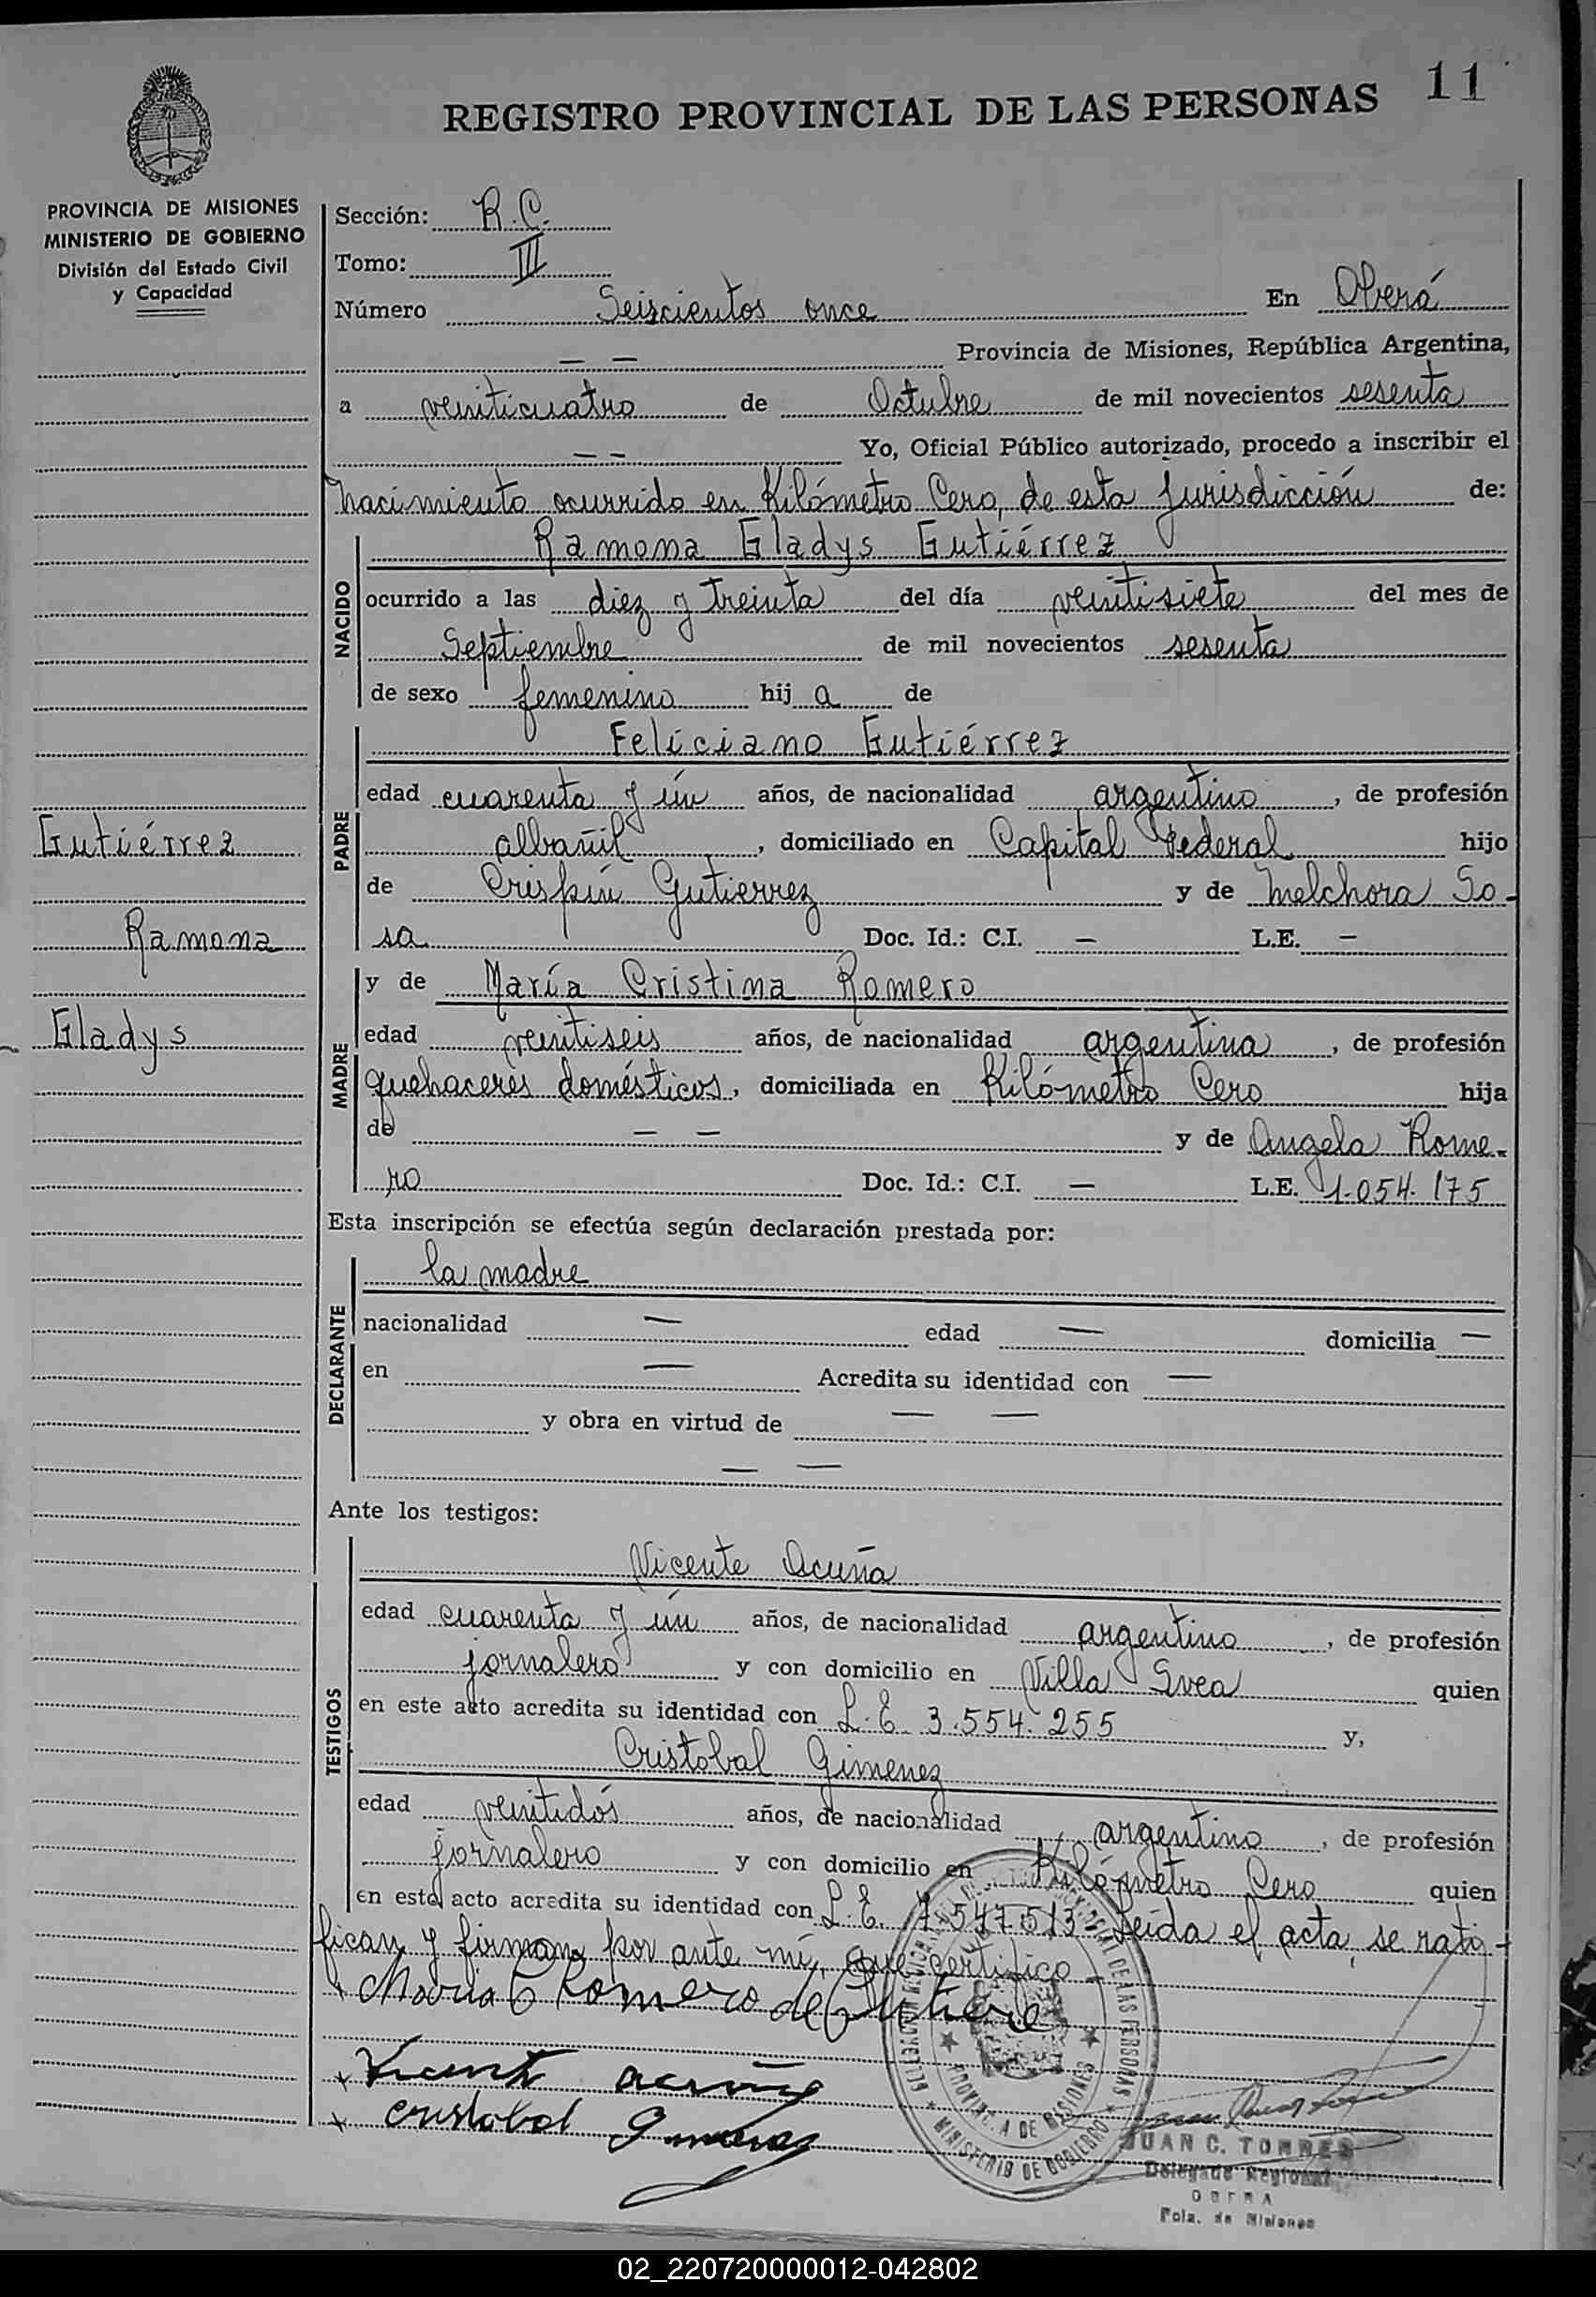 11
REGISTRO PROVINCIAL DE LAS PERSONAS
PROVINCIA DE MISIONES
MINISTERIO DE GOBIERNO
División del Estado Civil
y Capacidad
Sección: R.C.
Tomo: III
Número Seiscientos once En Oberá
— — Provincia de Misiones, República Argentina,
a veinticuatro de Octubre de mil novecientos sesenta
— — Yo, Oficial Público autorizado, procedo a inscribir el
nacimiento ocurrido en Kilómetro Cero, de esta jurisdicción de:
Ramona Gladys Gutiérrez
NACIDO
ocurrido a las diez y treinta del día veintisiete del mes de
Septiembre de mil novecientos sesenta
de sexo femenino hij a de
Feliciano Gutiérrez
PADRE
edad cuarenta y ún años, de nacionalidad argentino, de profesión
albañil, domiciliado en Capital Federal hijo
de Crispín Gutierrez y de Melchora So-
sa Doc. Id.: C.I. — L.E. —
Gutiérrez
Ramona
Gladys
y de María Cristina Romero
MADRE
edad veintiseis años, de nacionalidad argentina, de profesión
quehaceres domésticos, domiciliada en Kilómetro Cero hija
de — — y de Angela Rome-
ro Doc. Id.: C.I. — L.E. 1.054.175
Esta inscripción se efectúa según declaración prestada por:
la madre
DECLARANTE
nacionalidad — edad — domicilia —
en — Acredita su identidad con —
y obra en virtud de — —
— —
Ante los testigos:
Vicente Acuña
TESTIGOS
edad cuarenta y ún años, de nacionalidad argentino, de profesión
jornalero y con domicilio en Villa Svea quien
en este acto acredita su identidad con L.E. 3.554.255 y,
Cristobal Gimenez
edad veintidós años, de nacionalidad argentino, de profesión
jornalero y con domicilio en Kilómetro Cero quien
en este acto acredita su identidad con L.E. 7.547.513- Leida el acta, se rati-
fican y firman por ante mí, que certifico
Maria C Romero de
Vicente Acuña
Cristobal Gimenez
DE LAS PERSONAS
PROVINCIA DE MISIONES
MINISTERIO DE GOBIERNO
JUAN C. TORRES
Delegado Regional
OBERA
Pcia. de Misiones
02_220720000012-042802